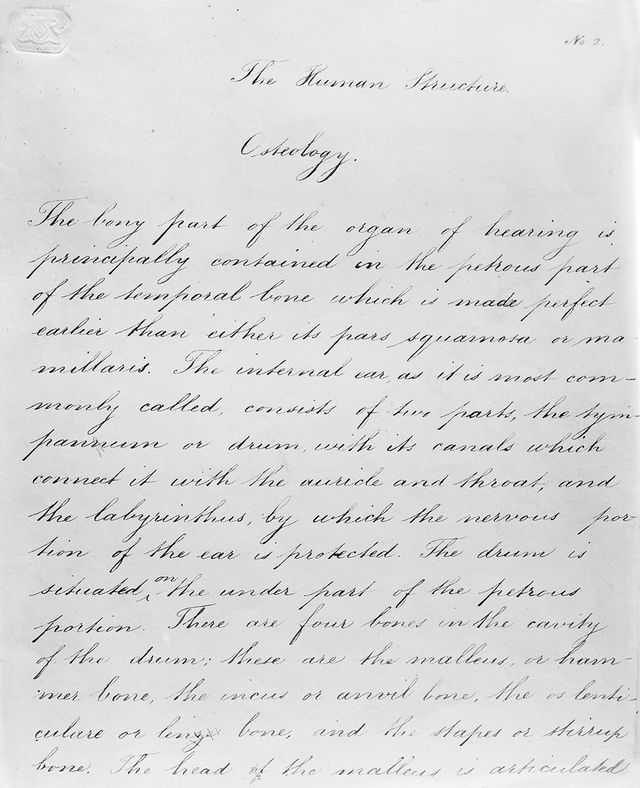 No 2.
The Human Structure.
Osteology.
The bony part of the organ of hearing is
principally contained in the petrous part
of the temporal bone which is made perfect
earlier than either its pars squamosa or ma-
millaris. The internal ear, as it is most com-
monly called, consists of two parts, the tym-
pannum or drum, with its canals which
connect it with the auricle and throat, and
the labyrinthus, by which the nervous por-
tion of the ear is protected. The drum is
situated on the under part of the petrous
portion. There are four bones in the cavity
of the drum; these are the malleus, or ham-
mer bone, the incus or anvil bone, the os lenti-
culare or bone, and the stapes or stirrup
bone. The head of the malleus is articulated